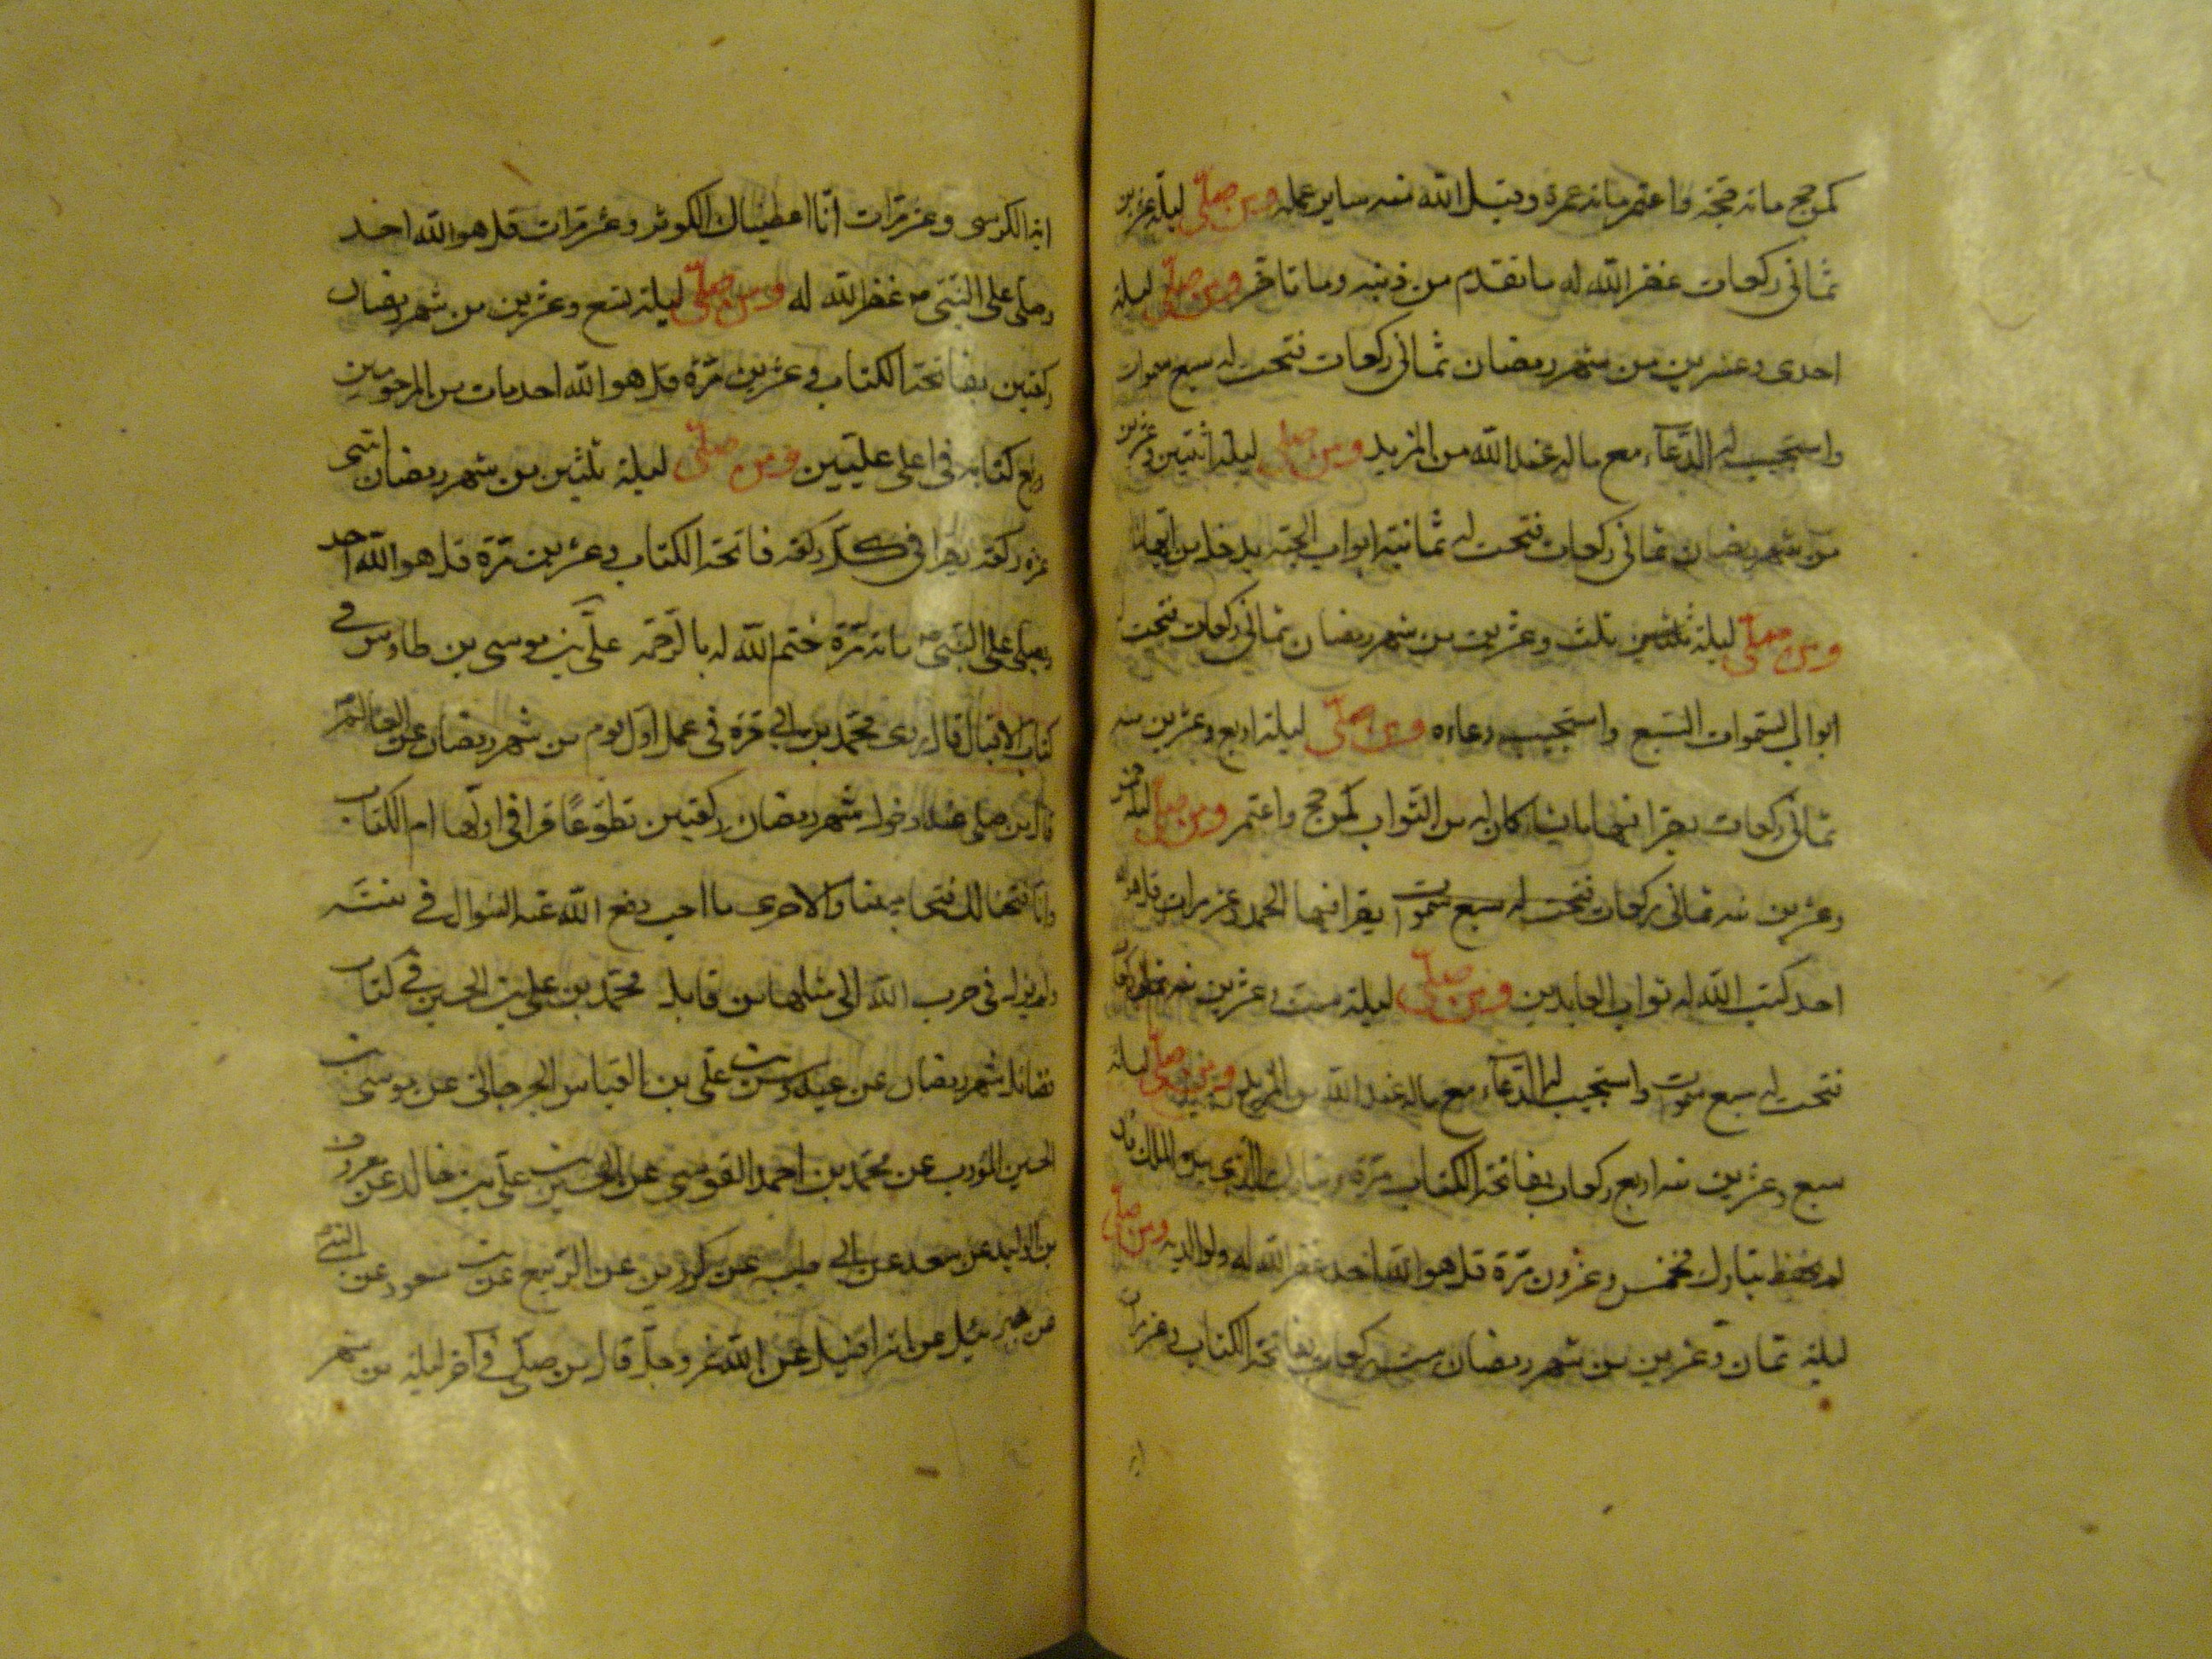 كمن حج مائة حجة واعتمر مائة عمرة ويقبل الله منه ساير عمله ومن صلى ليلة عشرين
ثماني ركعات غفر الله له ما تقدم من ذنبه وما تاخر ومن صلى ليلة
احدى وعشرين من شهر رمضان ثماني ركعات فتحت له سبع سموات
واستجيب له الدعاء مع ماله عند الله من المزيد ومن صلى ليلة اثنتين وعشرين
من شهر رمضان ثماني ركعات فتحت له ثمانية ابواب الجنة يدخل من ايها
ومن صلى ليلة ثلث وعشرين من شهر رمضان ثماني ركعات فتحت
ابواب السموات السبع واستجيب دعاءه ومن صلى ليلة اربع وعشرين منه
ثماني ركعات يقرا فيها ما يشا كان له من الثواب كمن حج واعتمر ومن صلى ليلة خمس
وعشرين منه ثماني ركعات فتحت له سبع سموات يقرا فيها الحمد وعشر مرات قل هو الله
احد كتب الله له ثواب العابدين ومن صلى ليلة ست وعشرين منه ثماني ركعات
فتحت له سبع سموات واستجيب له الدعاء مع ماله عند الله من المزيد ومن صلى ليلة
سبع وعشرين منه اربع ركعات بفاتحة الكتاب مرة وتبارك الذي بيده الملك فان
لم يحفظ تبارك فخمس وعشرون مرة قل هو الله احد غفر الله له ولوالديه ومن صلى
ليلة ثمان وعشرين من شهر رمضان ست ركعات بفاتحة الكتاب وعشر مرات
اية
اية الكرسي وعشر مرات انا اعطيناك الكوثر وعشر مرات قل هو الله احد
وصلى على النبي ص غفر الله له ومن صلى ليلة تسع وعشرين من شهر رمضان
ركعتين بفاتحة الكتاب وعشرين مرة قل هو الله احد مات من المرحومين
ورفع كتابه في اعلى عليين ومن صلى ليلة ثلثين من شهر رمضان اثنتي
عشرة ركعة يقرا في كل ركعة فاتحة الكتاب وعشرين مرة قل هو الله احد
ويصلى على النبي ص مائة مرة ختم الله له بالرحمة علي بن موسى بن طاوس في
كتاب الاقبال قال روى محمد بن ابي قرة في عمل اول يوم من شهر رمضان عن العالم
قال من صلى عند دخول شهر رمضان ركعتين تطوعا قرا في اولهما ام الكتاب
وانا فتحنا لك فتحا مبينا والاخرى ما احب دفع الله عنه السوال في سنته
ولم يزل في حرب الله الى مثلها من قابل محمد بن علي بن الحسين في كتاب
فضائل شهر رمضان عن عبدوس بن علي بن العباس الجرجاني عن موسى بن
الحسين المؤدب عن محمد بن احمد القومسي عن الحسين بن علي بن خالد عن معروف
بن الوليد عن سعد عن ابي طيبة عن كردين عن الربيع عن بن مسعود عن النبي
عن جبرئيل عن اسرافيل عن الله عز وجل قال من صلى في اخر ليلة من شهر